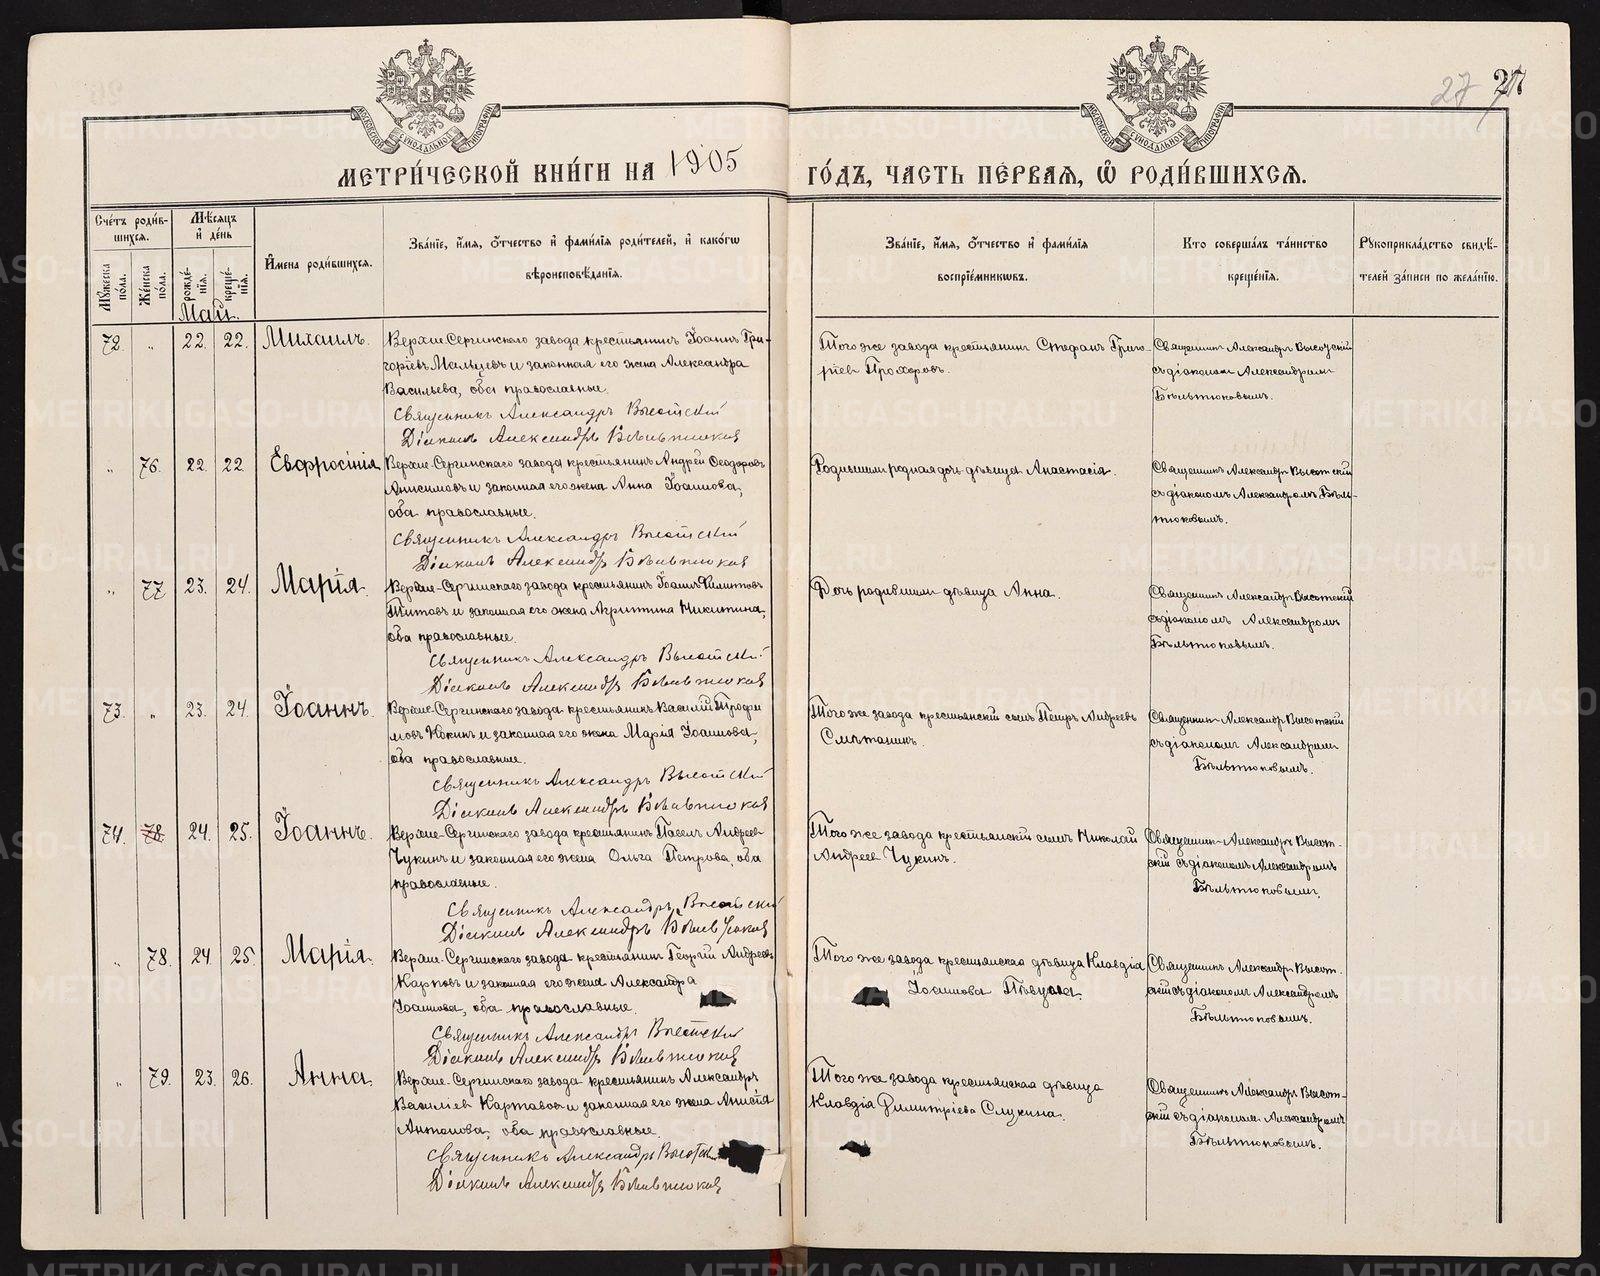 27 27
МОСКОВСКОЙ СѴНОДАЛЬНОЙ ТИПОГРАФІИ
МОСКОВСКОЙ СѴНОДАЛЬНОЙ ТИПОГРАФІИ
МЕТРИ́ЧЕСКОЙ КНИ́ГИ НА 1905 ГО́ДЪ, ЧАСТЬ ПЕ́РВАЯ, Ѡ РОДИ́ВШИХСЯ.
Сче́тъ роди́вшихся.
Му́жеска по́ла.
Же́нска по́ла.
Мѣ́сяцъ и де́нь
рожде́нія.
креще́нія.
Имена роди́вшихся.
Зва́ніе, и́мя, о́тчество и фами́лія роди́телей, и како́гѡ
вѣроисповѣ́данія.
Зва́ніе, и́мя, о́тчество и фами́лія
воспріе́мниковъ.
Кто соверша́лъ та́инство
креще́нія.
Рукоприкла́дство свидѣ́-
телей за́писи по жела́нію.
Май.
72. „ 22. 22. Михаилъ.
Верхне-Сергинскаго завода крестьянинъ Іоаннъ Гри-
горіевъ Мальцевъ и законная его жена Александра
Васильева, оба православные.
Священникъ Александръ Высотскій
Діаконъ Александръ Бѣльтюковъ
Того же завода крестьянинъ Стефанъ Григо-
ріевъ Прохоровъ.
Священникъ Александръ Высотскій
съ діакономъ Александромъ
Бѣльтюковымъ.
„ 76. 22. 22 Евфросинія
Верхне-Сергинскаго завода крестьянинъ Андрей Ѳеодоровъ
Анисимовъ и законная его жена Анна Іоаннова,
оба православные.
Священникъ Александръ Высотскій
Діаконъ Александръ Бѣльтюковъ
Родившихъ родная дочь дѣвица Анастасія.
Священникъ Александръ Высотскій
съ діакономъ Александромъ Бѣль-
тюковымъ.
„ 77 23. 24. Марія.
Верхне-Сергинскаго завода крестьянинъ Іоаннъ Филиповъ
Титовъ и законная его жена Агриппина Никитина,
оба православные.
Священникъ Александръ Высотскій
Діаконъ Александръ Бѣльтюковъ
Дочь родившихъ дѣвица Анна.
Священникъ Александръ Высотскій
съ діакономъ Александромъ
Бѣльтюковымъ.
73. „ 23. 24. Іоаннъ.
Верхне-Сергинскаго завода крестьянинъ Василій Трофи
мовъ Кокинъ и законная его жена Марія Іоаннова,
оба православные.
Священникъ Александръ Высотскій
Діаконъ Александръ Бѣльтюковъ
Того же завода крестьянскій сынъ Петръ Андреевъ
Сметанинъ.
Священникъ Александръ Высотскій
съ діакономъ Александромъ
Бѣльтюковымъ.
74. 78. 24. 25. Іоаннъ.
Верхне-Сергинскаго завода крестьянинъ Павелъ Андреевъ
Чукинъ и законная его жена Ольга Петрова, оба
православные.
Священникъ Александръ Высотскій
Діаконъ Александръ Бѣльтюковъ
Того же завода крестьянскій сынъ Николай
Андреевъ Чукинъ.
Священникъ Александръ Высот-
скій съ діакономъ Александромъ
Бѣльтюковымъ.
„ 78. 24. 25. Марія.
Верхне-Сергинскаго завода крестьянинъ Георгій Андреевъ
Карповъ и законная его жена Александра
Іоаннова, оба православные.
Священникъ Александръ Высотскій
Діаконъ Александръ Бѣльтюковъ
Того же завода крестьянская дѣвица Клавдія
Іоаннова Пѣвцова.
Священникъ Александръ Высот-
скій съ діакономъ Александромъ
Бѣльтюковымъ.
„ 79. 23. 26. Анна.
Верхне-Сергинскаго завода крестьянинъ Александръ
Василіевъ Картавовъ и законная его жена Анисія
Антонова, оба православные.
Священникъ Александръ
Діаконъ Александръ Бѣльтюковъ
Того же завода крестьянская дѣвица
Клавдія Димитріева Слукина.
Священникъ Александръ Высот-
скій съ діакономъ Александромъ
Бѣльтюковымъ.
METRIKI.GASO-URAL.RU